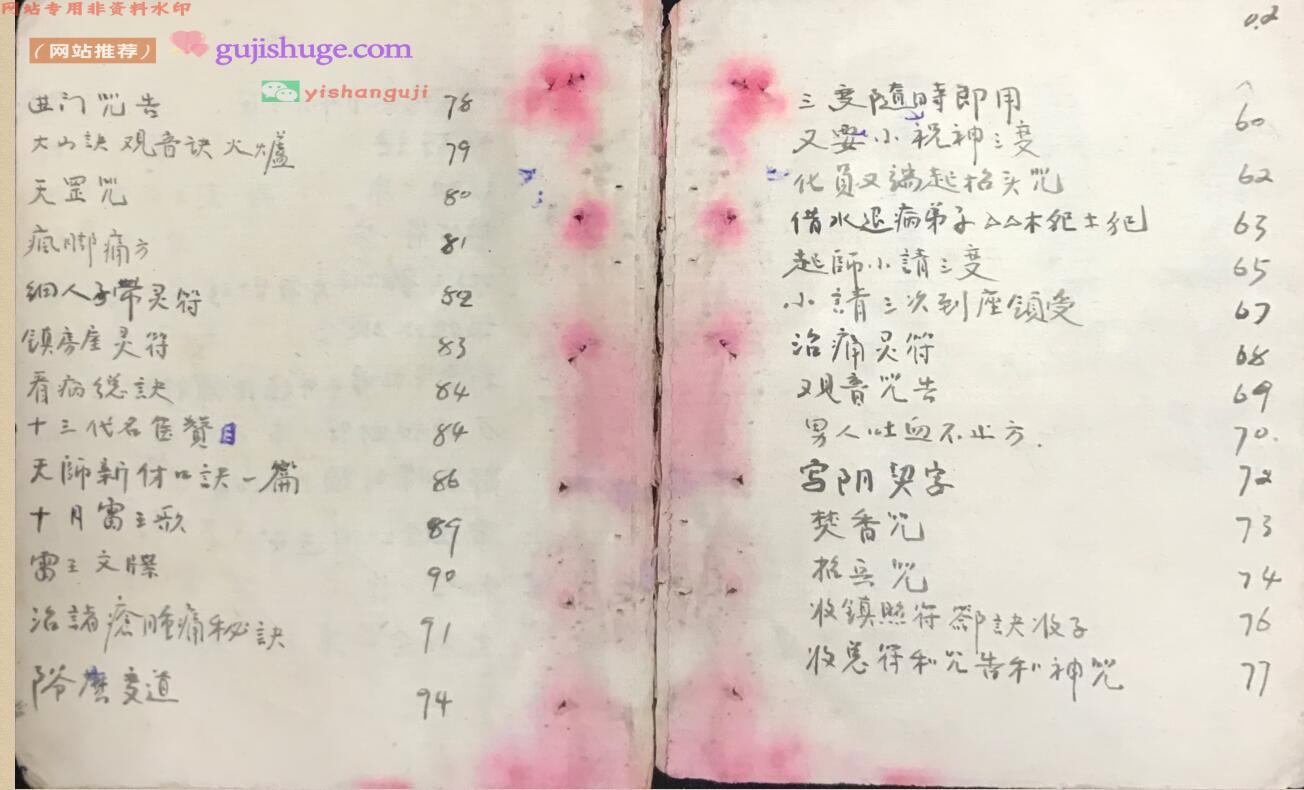 网站专用非资料水印
（网站推荐） gujishuge.com
yishanguji
02
三变随時即用 60
又要小祝神三变
化員又論起招头咒 62
借水退病弟子△△木犯土犯 63
起師小請三变 65
小請三次到座領受 67
治痛灵符 68
又观音咒告 69
男人吐血不止方. 70.
写阴契字 72
焚香咒 73
招兵咒 74
收鎮照符 訣收子 76
收思符和咒告和神咒 77
门咒告 78
大山訣 观音訣 火爐 79
天罡咒 80
瘋脚痛方 81
细人子带灵符 82
鎮房屋灵符 83
看病総訣 84
十三代名医贊目 84
天師新付口訣一篇 86
十月雷王歌 89
雷王文牒 90
治諸瘡腫痛秘訣 91
变道 94